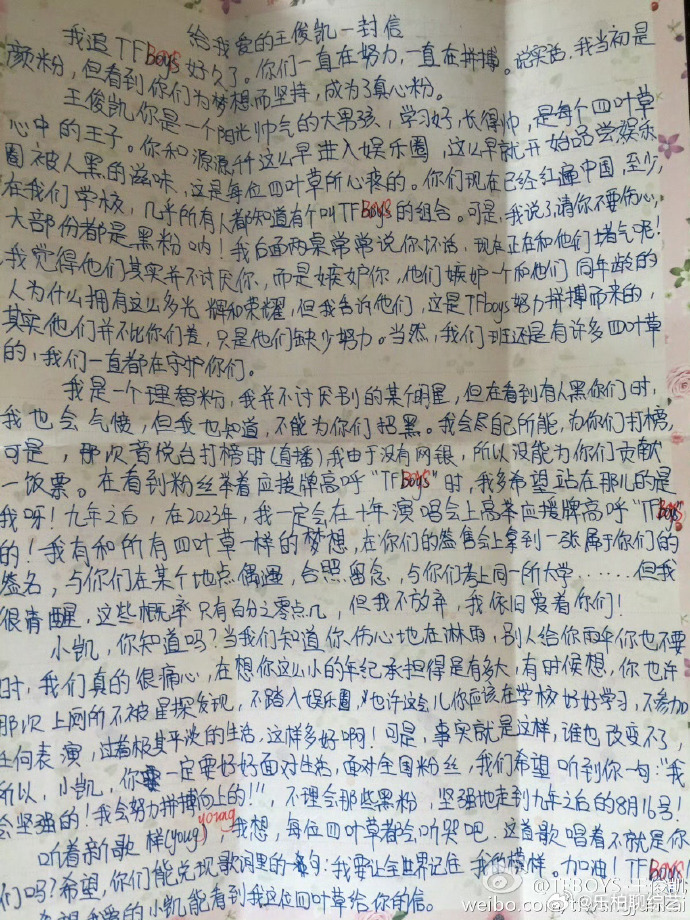 给我爱的王俊凯一封信
我追TFBoys好久了。你们一直在努力,一直在拼搏。说实话,我当初是
颜粉,但看到你们为梦想而坚持,成为了真心粉。
王俊凯,你是一个阳光帅气的大男孩,学习好,长得帅,是每个四叶草
心中的王子。你和源源,千千这么早进入娱乐圈,这么早就开始品尝娱乐
圈被人黑的滋味,这是每位四叶草所心疼的。你们现在已经红遍中国,至少,
在我们学校,几乎所有人都知道有个叫TFBoys的组合。可是,我说了请你不要伤心,
大部份都是黑粉呐!我后面两桌常常说你坏话,现在正在和他们堵气呢!
我觉得他们其实并不讨厌你,而是嫉妒你,他们嫉妒一个和他们同年龄的
人为什么拥有这么多光辉和荣耀,但我告诉他们,这是TFboys努力拼搏而来的,
其实他们并不比你们差,只是他们缺少努力。当然,我们班还是有许多四叶草
的,我们一直都在守护你们。
我是一个理智粉,我并不讨厌别的某个明星,但在看到有人黑你们时,
我也会气愤,但我也知道,不能为你们招黑。我会尽自己所能,为你们打榜,
可是,那次音悦台打榜时(直播)我由于没有网银,所以没能为你们贡献
一饭票。在看到粉丝举着应援牌高呼"TFBoys"时,我多希望站在那儿的是
我呀!九年之后,在2023年,我一定会在十年演唱会上高举应援牌高呼"TFBoys"
的!我有和所有四叶草一样的梦想,在你们的签售会上拿到一张属于你们的
签名,与你们在某个地点偶遇,合照留念,与你们考上同一所大学………但我
很青醒,这些概率只有百分之零点几,但我不放弃,我依旧爱着你们!
小凯,你知道吗?当我们知道你伤心地在淋雨,别人给你雨伞你也不要
时,我们真的很痛心,在想你这么小的年纪承担得是有多大,有时候想,你也许
那次上网所不被星探发现,不踏入娱乐圈,也许这会儿你应该在学校好好学习,不参加
任何表演,过着极其平淡的生活,这样多好啊!可是,事实就是这样,谁也改变不了,
所以,小凯,你一定要好好面对生活,面对全国粉丝,我们希望听到你一句:"我
会坚强的!我会努力拼搏向上的!",不理会那些黑粉,坚强地走到九年之后的8月16号!
听着新歌样(young),我想,每位四叶草都会听哭吧,这首歌唱着不就是你
们吗?希望,你们能兑现歌词里的一句:我要让全世界记住我的模样。加油!TFBOYS
我爱的小凯能看到我这位四叶草给你的信。
@TFBOYS-王俊凯
weibo.com/tkwangjunkai